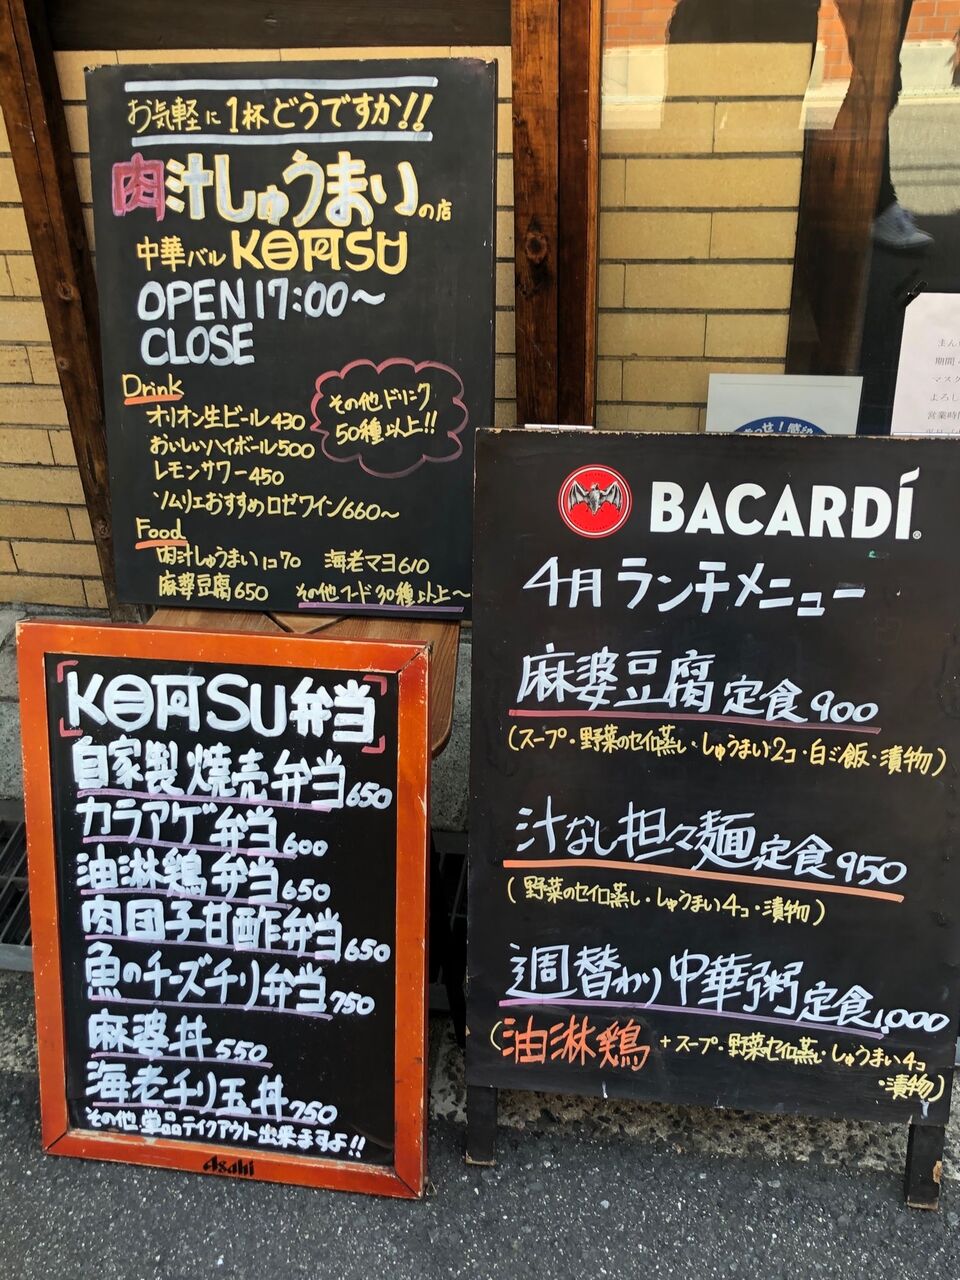 お気軽に1杯どうですか!!
肉汁しゅうまいの店
中華バル KOMATSU
OPEN 17:00〜
CLOSE
Drink
オリオン生ビール430
おいしいハイボール500
レモンサワー450
ソムリエおすすめロゼワイン660〜
その他ドリンク
50種以上!!
Food
肉汁しゅうまい1コ70 海老マヨ610
麻婆豆腐650 その他フード30種以上〜
弁当
自家製焼売弁当650
カラアゲ弁当600
油淋鶏弁当650
肉団子甘酢弁当650
魚のチーズチリ弁当750
麻婆丼550
海老チリ玉丼750
その他単品テイクアウト出来ますよ!!
Asahi
BACARDÍ
4月ランチメニュー
麻婆豆腐定食900
(スープ・野菜のセイロ蒸し・しゅうまい2コ・白ご飯・漬物)
汁なし担々麺定食950
(野菜のセイロ蒸し・しゅうまい4コ・漬物)
週替わり中華粥定食1,000
(油淋鶏 +スープ・野菜のセイロ蒸し・しゅうまい4コ
・漬物)
期間
マスク
よろし
営業時